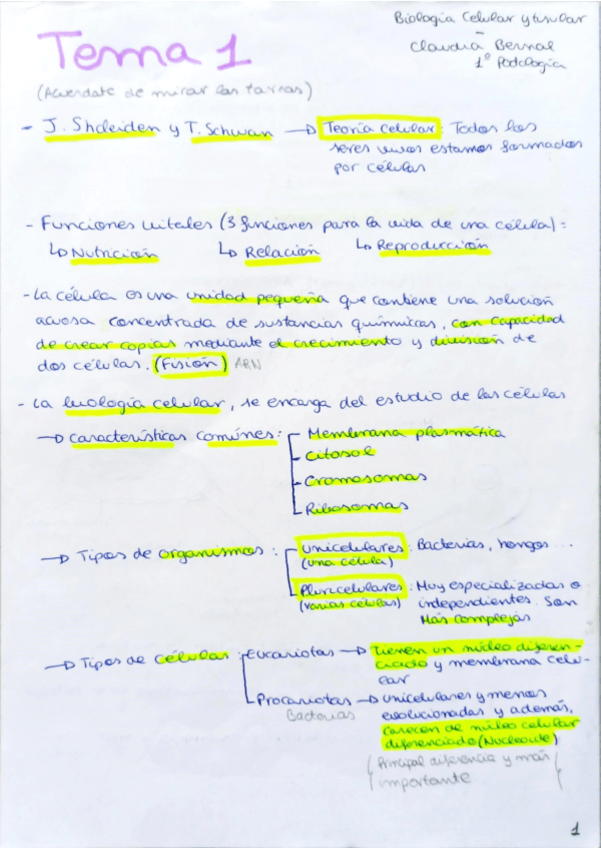 Biología Celular y tisular
Tema 1
Claudia Bernal
1º Podología
(Acuerdate de mirar las tareas)
- J. Shcleiden y T. Schwan → Teoría celular: Todos los
seres vivos estamos formados
por células
- Funciones vitales (3 funciones para la vida de una célula):
↳ Nutrición ↳ Relación ↳ Reproducción
- La célula es una unidad pequeña que contiene una solución
acuosa concentrada de sustancias químicas, con capacidad
de crear copias mediante el crecimiento y división de
dos células. (Fusión) ARN
- La biología celular, se encarga del estudio de las células
→ Características comúnes: Membrana plasmática
- Citosol
- Cromosomas
Ribosomas
→ Tipos de organismos: Unicelulares: Bacterias, hongos...
(una célula)
Pluricelulares: Muy especializadas o
(varias células) independientes. Son
Más complejas
→ Tipos de células: Eucariotas → Tienen un núcleo diferen-
ciado y membrana celu-
ar
Procariotas → Unicelulares y menos
Bacterias evolucionadas y además,
carecen de núcleo celular
diferenciado (Nucleoide)
(Principal diferencia y más
importante)
1